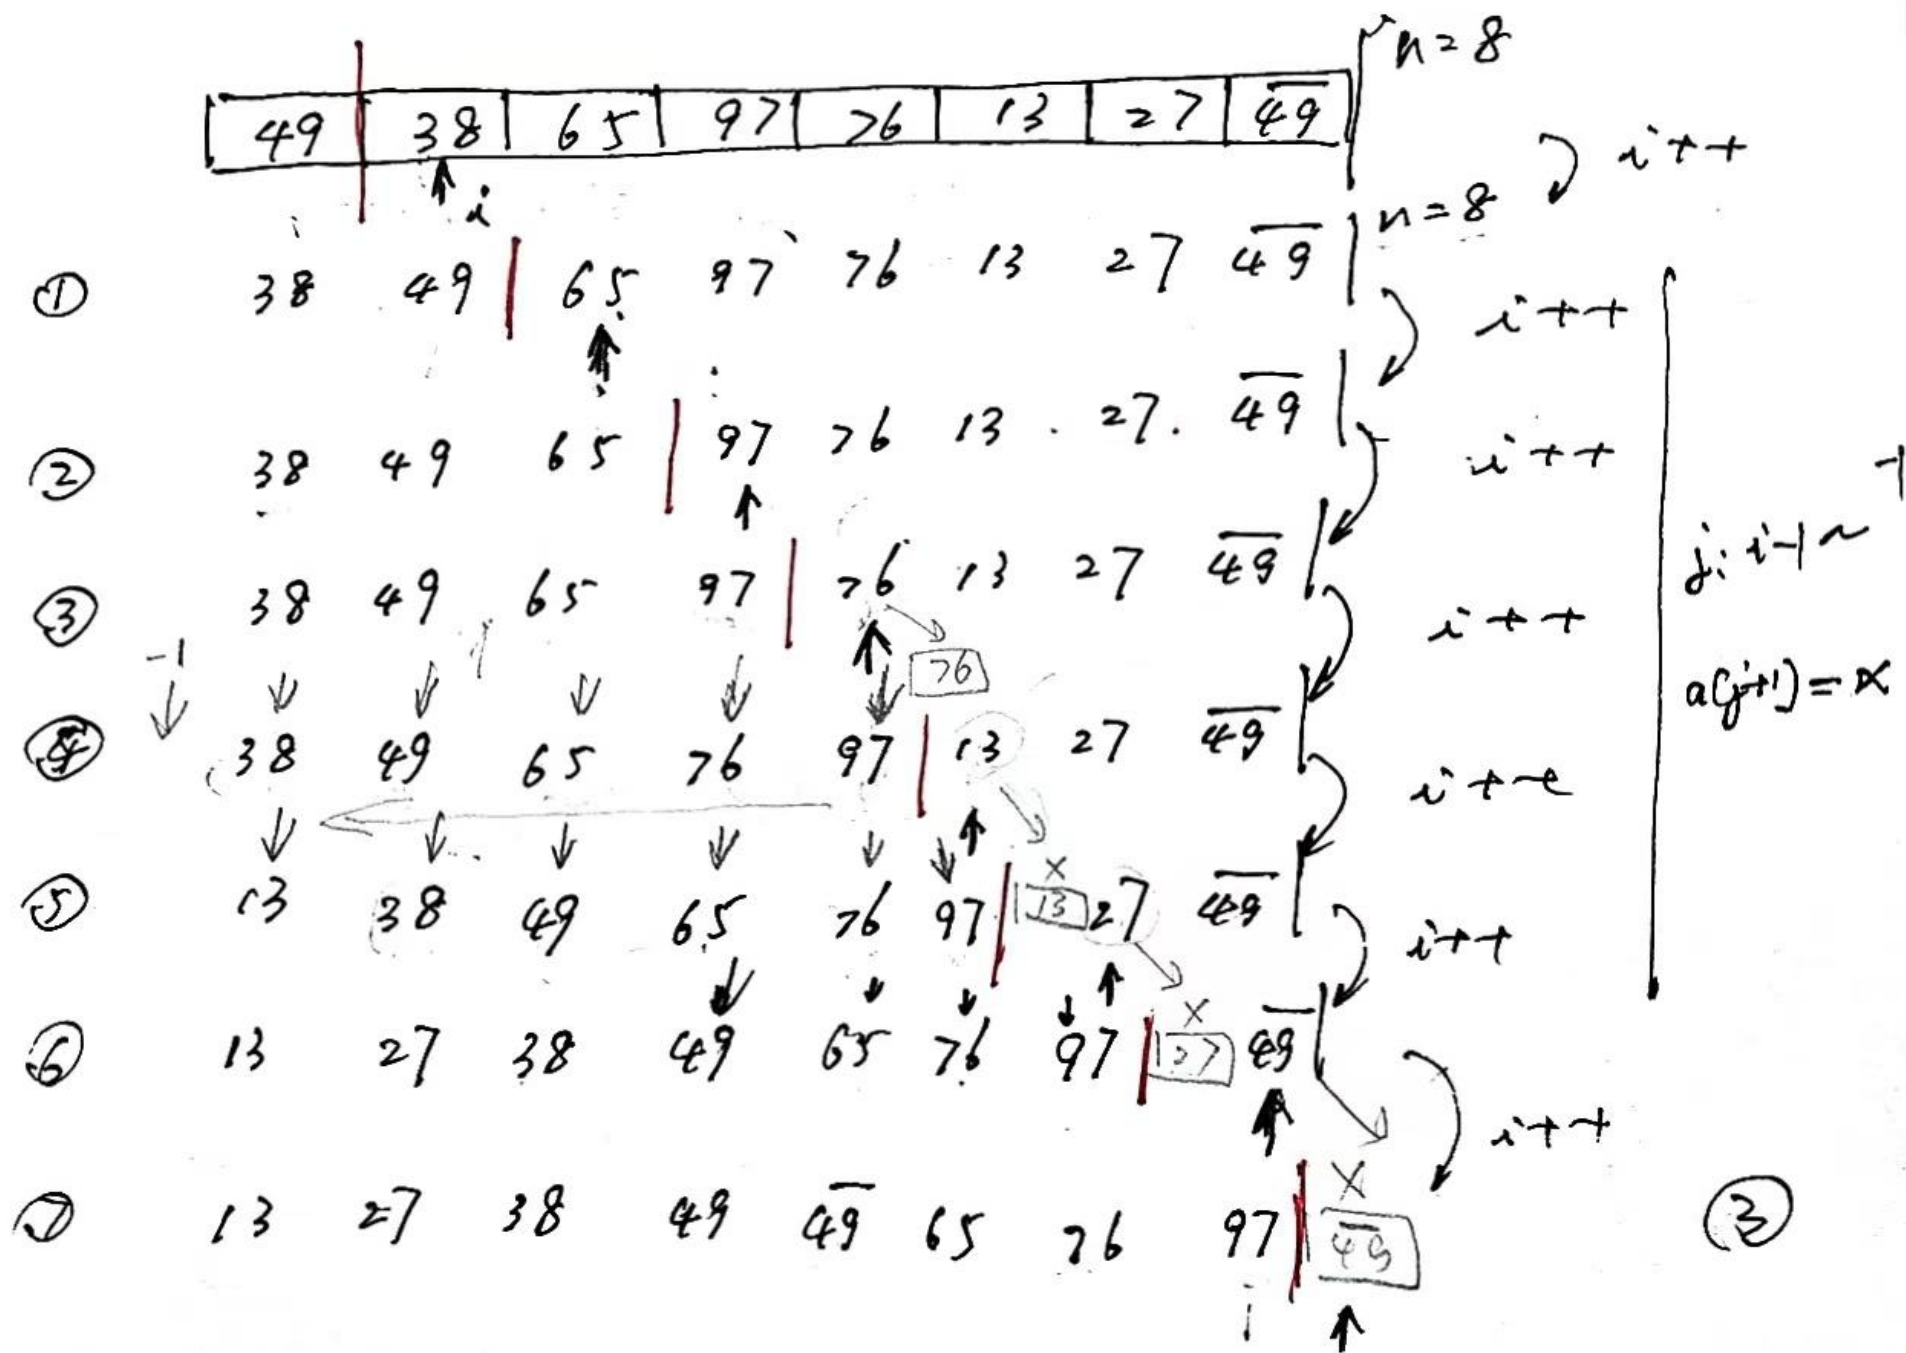 n=8
49 38 65 97 76 13 27 4̅9̅
i++
i
n=8
① 38 49 65 97 76 13 27 4̅9̅
i++
② 38 49 65 97 76 13 27 4̅9̅
i++
-1
j: i-1~
③ 38 49 65 97 76 13 27 4̅9̅
i++
-1
76
a[j+1]=x
④ 38 49 65 76 97 13 27 4̅9̅
i++
x
⑤ 13 38 49 65 76 97 13 27 4̅9̅
i++
x
⑥ 13 27 38 49 65 76 97 27 4̅9̅
i++
x
⑦ 13 27 38 49 4̅9̅ 65 76 97 4̅9̅
③